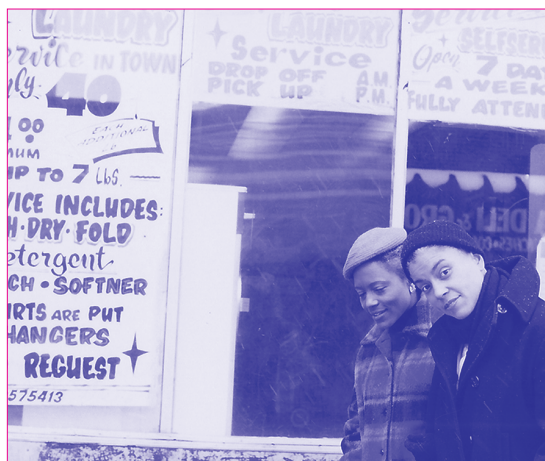 LAUNDRY
rvice IN TOWN
ly:
40
.00
EACH
ADDITIONAL
LB
MUM
UP TO 7 Lbs.
VICE INCLUDES:
H·DRY·FOLD
etergent
CH · SOFTNER
IRTS ARE PUT
HANGERS
REGUEST
575413
LAUNDRY
Service
DROP OFF A.M.
PICK UP P.M.
Service
SELFSERV
Open 7 DAY
A WEEK
FULLY ATTEN
DELI & GRO